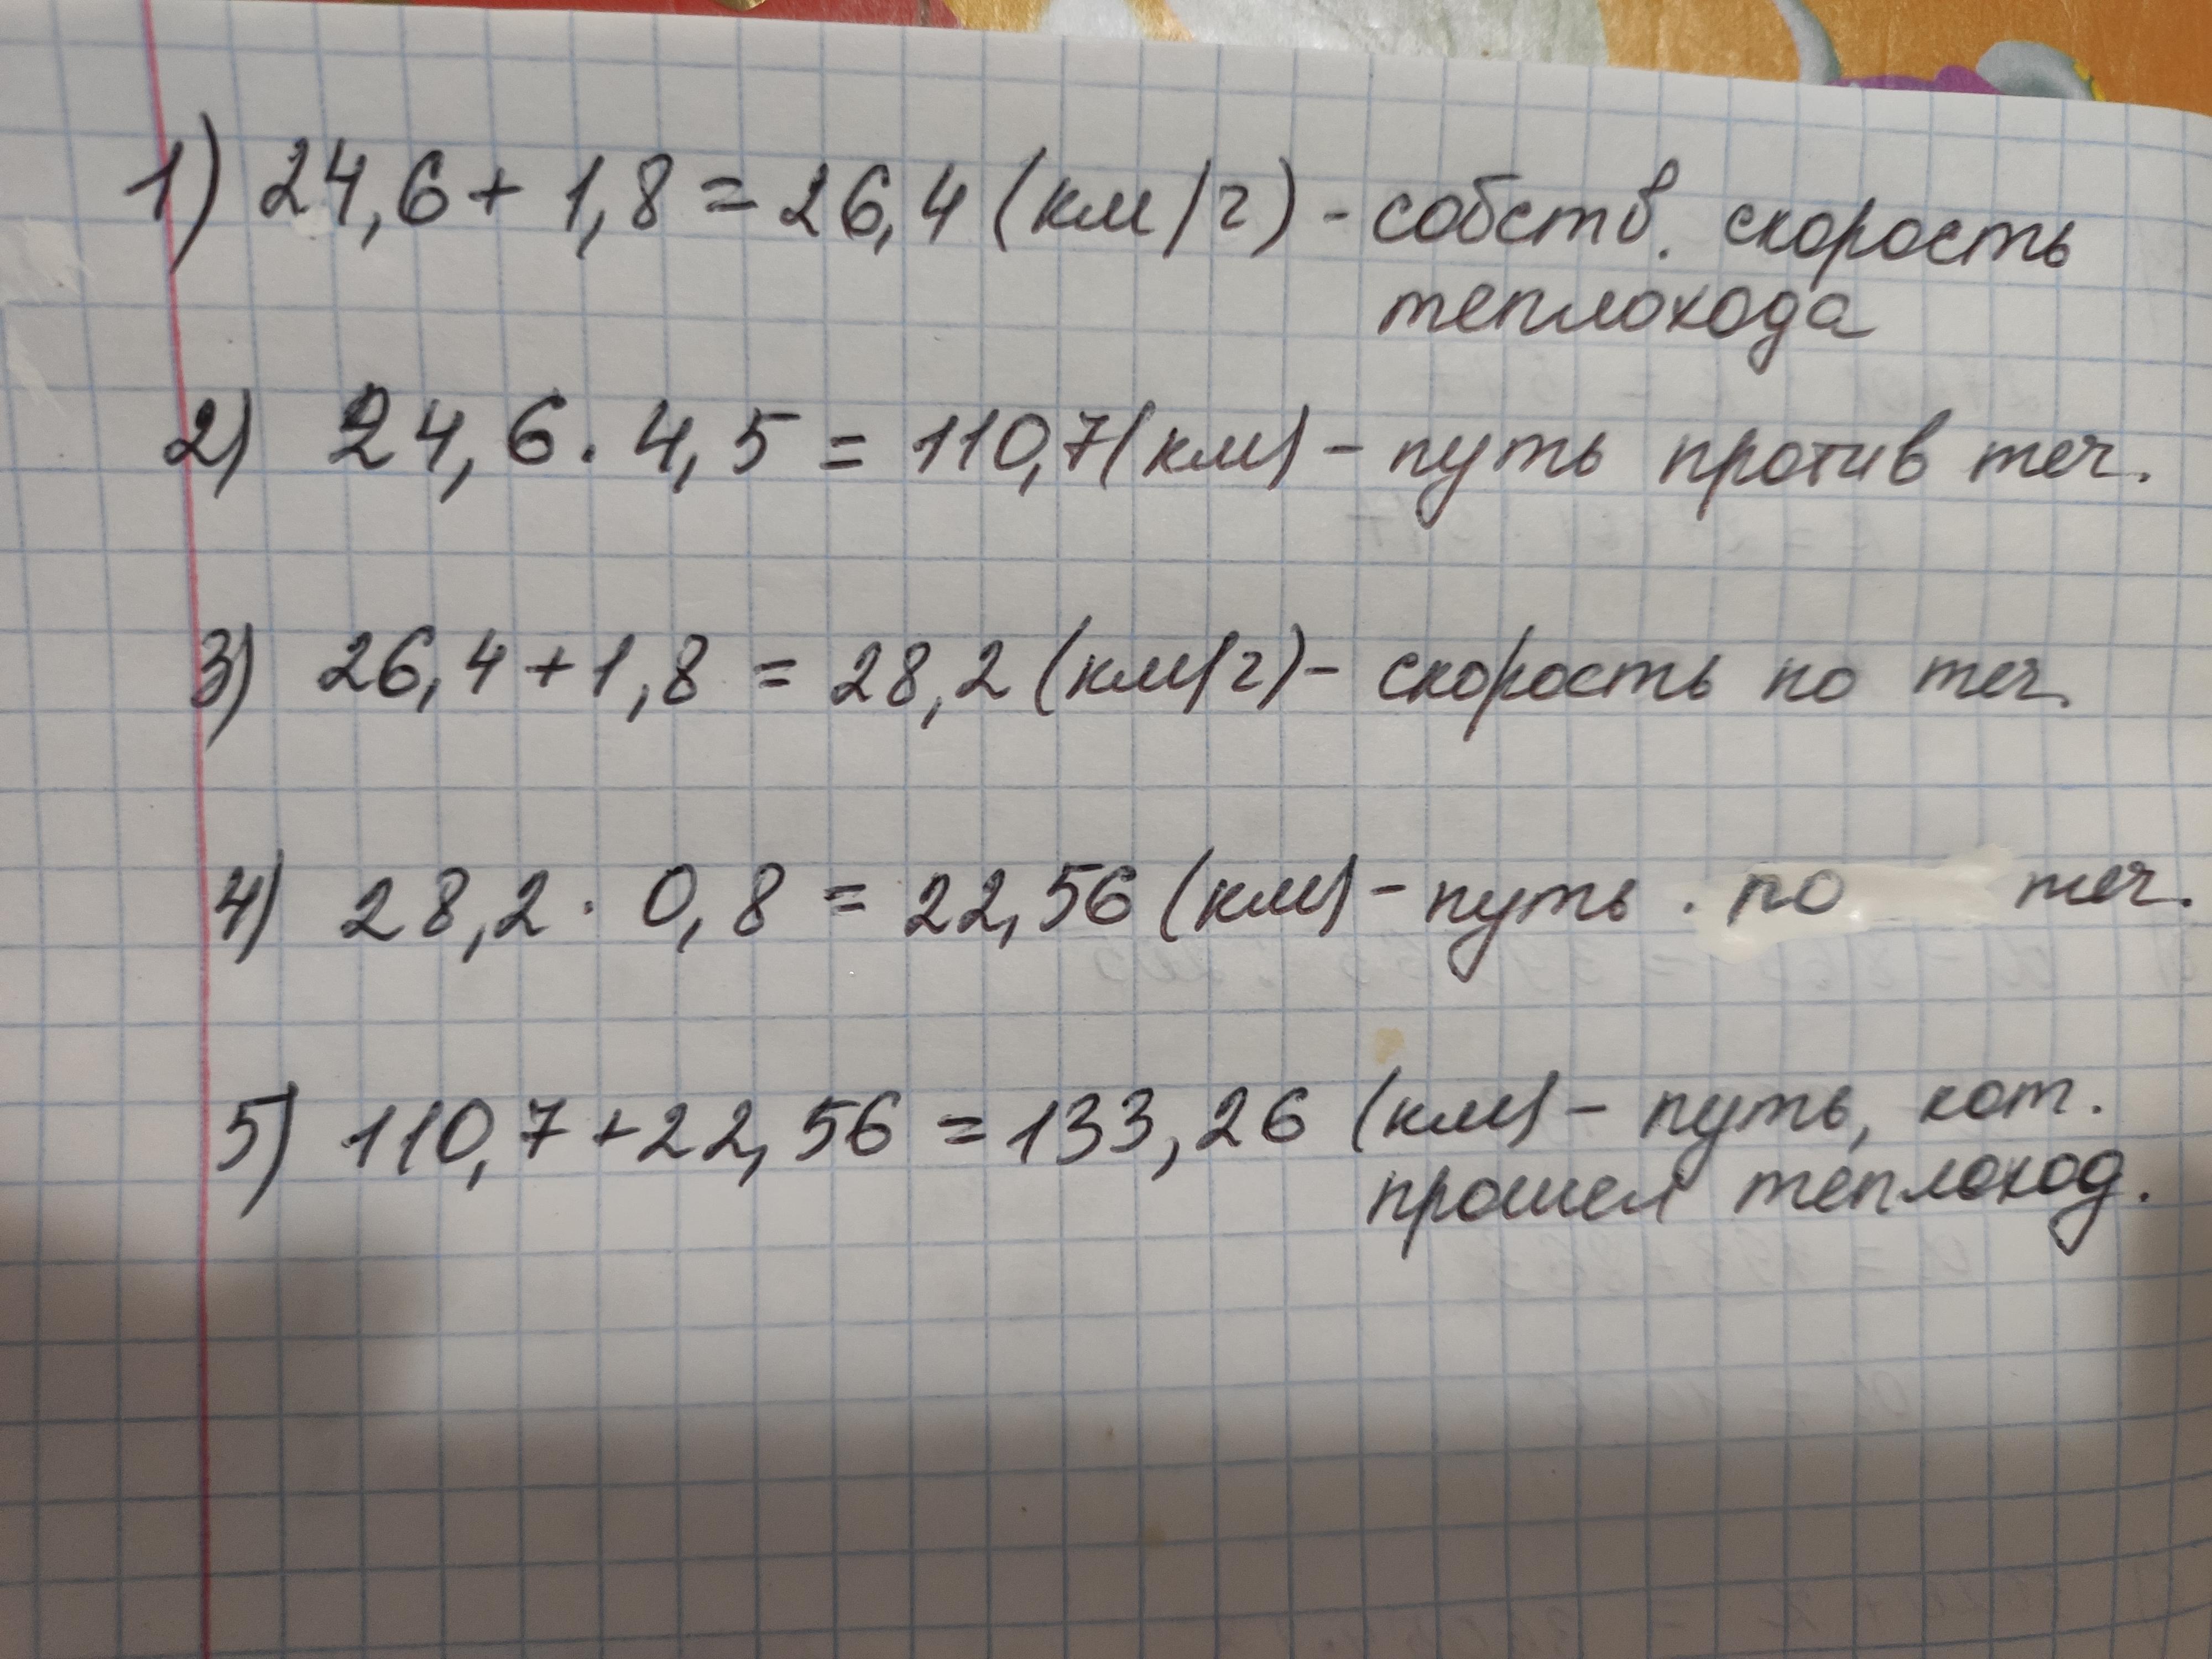 1) 24,6 + 1,8 = 26,4 (км/г) - собств. скорость
теплохода
2) 24,6 · 4,5 = 110,7 (км) - путь против теч.
3) 26,4 + 1,8 = 28,2 (км/г) - скорость по теч.
4) 28,2 · 0,8 = 22,56 (км) - путь . по теч.
5) 110,7 + 22,56 = 133,26 (км) - путь, кот.
прошел теплоход.